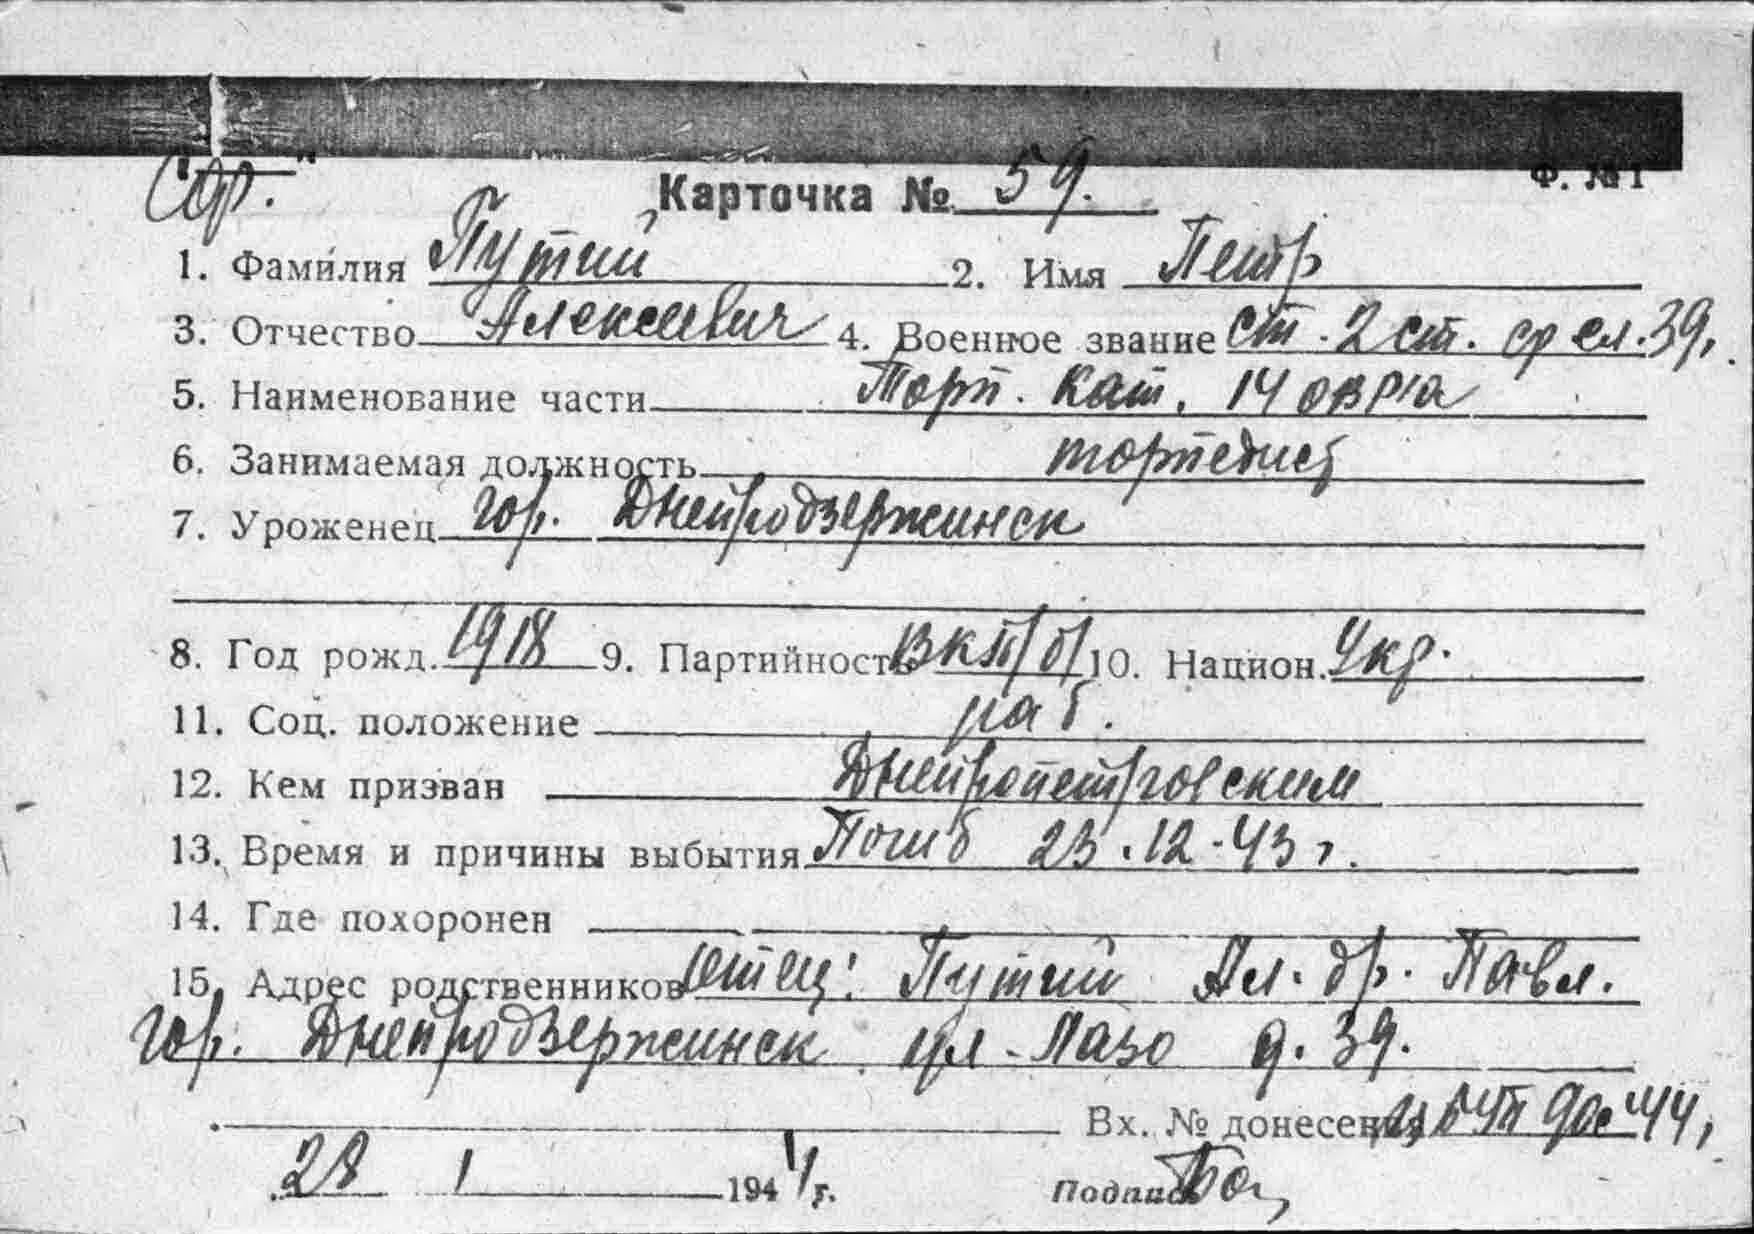 Ф. № 1
"Ср."
Карточка № 59.
1. Фамилия Путий 2. Имя Петр
3. Отчество Алексеевич 4. Военное звание ст. 2 ст. ср сл. 39 г.
5. Наименование части Торп. кат. 14 ОВРа
6. Занимаемая должность торпедист
7. Уроженец гор. Днепродзержинск
8. Год рожд. 1918 9. Партийность ВКП/б/ 10. Национ. Укр.
11. Соц. положение раб.
12. Кем призван Днепропетровским
13. Время и причины выбытия Погиб 23.12.43 г.
14. Где похоронен
15. Адрес родственников отец: Путий Ал-др. Павл.
гор. Днепродзержинск ул. Лазо д. 39.
Вх. № донесения 44 г.
28 1 1944 г. Подпись